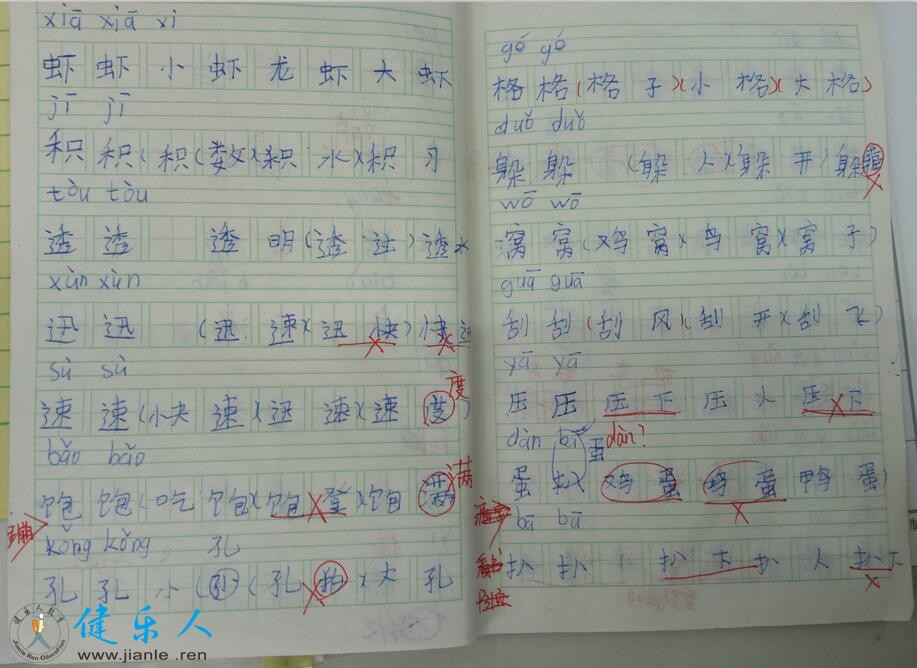 xiā xiā xi
虾 虾 小 虾 龙 虾 大 虾
jī jī
积 积 (积 (数 × 积 水 × 积 习
tòu tòu
透 透 透 明 (透 过) 透 水
xùn xùn
迅 迅 (迅 速 × 迅 快)
sù sù
度
速 速 (小夬 速 × 迅 速 × 速
bǎo bǎo
满
饱 饱 (吃 饱 × 饱 登 × 饱 满
kǒng kǒng 孔
孔 孔 小 (孔 (孔 × 大 孔
gé gé
格 格 (格 子) (小 格) (大 格)
duǒ duǒ
躲 躲 (躲 人 × 躲 开) 躲
wō wō
窝 窝 (鸡 窝 × 鸟 窝 × 窝 子)
guā guā
刮 刮 (刮 风) (刮 开 × 刮 飞)
yā yā
压 压 压 下 压 人 压 下
dàn bā 蛋 dàn?
蛋 扒 鸡 蛋 鸡 蛋 鸭 蛋)
bā bā
扒 扒 扒 大 扒 人 扒 下
健乐人
www.jianle.ren